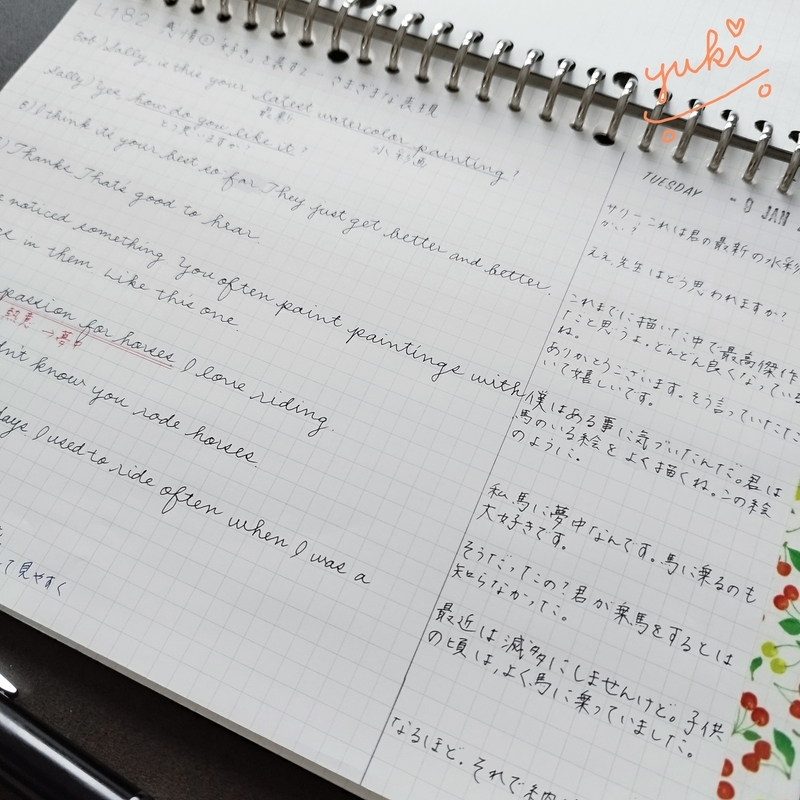 yuki
L182 感情② 好きを表する－さまざまな表現
Bob) Sally, is this your latest watercolor painting?
最新
水彩画
Sally) Yes, how do you like it?
どう思いますか?
B) I think it's your best so far. They just get better and better.
) Thanks. That's good to hear.
noticed something. You often paint paintings with
in them. Like this one.
passion for horses. I love riding.
熱意→夢中
dn't know you rode horses.
days. I used to ride often when I was a
て見やすく
TUESDAY - 9 JAN
サリー、これは君の最新の水彩
かい?
ええ、先生はどう思われますか?
これまでに描いた中で最高傑作
だと思うよ。どんどん良くなっている
ね。
ありがとうございます。そう言っていただ
いて嬉しいです。
僕はある事に気づいたんだ。君は
馬のいる絵をよく描くね。この絵
のように。
私、馬に夢中なんです。馬に乗るのも
大好きです。
そうだったの?君が乗馬をするとは
知らなかった。
最近は滅多にしませんけど。子供
の頃は、よく馬に乗っていました。
なるほど。それで